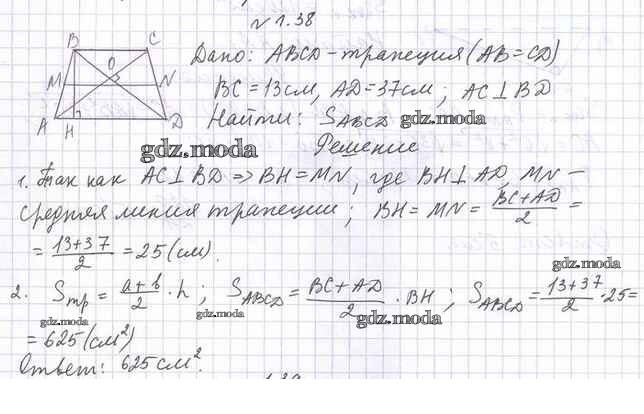 № 1.38
B C
O
M N
A H D
Дано: ABCD - трапеция (AB = CD)
BC = 13см, AD = 37см; AC ⊥ BD
Найти: S_ABCD gdz.moda
gdz.moda Решение
1. Так как AC ⊥ BD => BH = MN, где BH ⊥ AD, MN -
средняя линия трапеции; BH = MN = (BC + AD)/2 =
= (13+37)/2 = 25 (см).
gdz.moda
2. S_тр = (a+b)/2 · h; S_ABCD = (BC + AD)/2 · BH; S_ABCD = (13+37)/2 · 25 =
gdz.moda gdz.moda gdz.moda
= 625 (см²)
Ответ: 625 см².
1.39